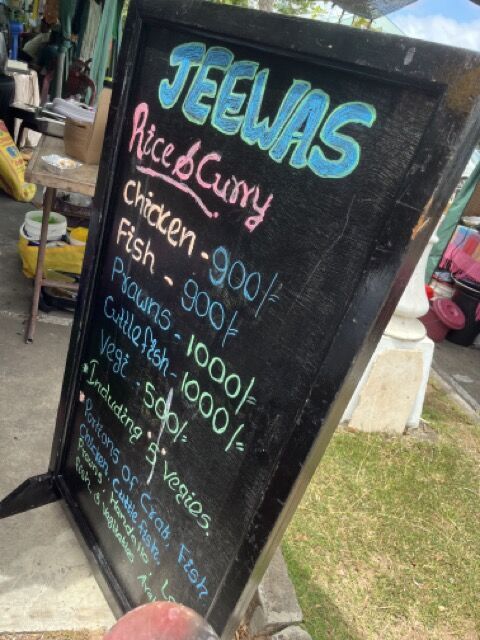 JEEWAS
Rice & Curry
Chicken - 900/-
Fish - 900/-
Prawns - 1000/-
Cuttlefish - 1000/-
Vegi - 500/-
Including 5 vegies.
Portions of Crab Fish
Chicken Cuttlefish
Prawns
Fish & Vegitables